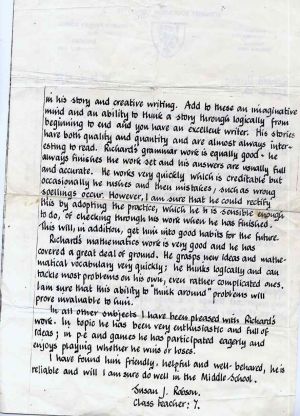 in his story and creative writing. Add to these an imaginative
mind and an ability to think a story through logically from
beginning to end and you have an excellent writer. His stories
have both quality and quantity and are almost always inter-
esting to read. Richard's grammar work is equally good - he
always finishes the work set and his answers are usually full
and accurate. He works very quickly which is creditable but
occasionally he rushes and then mistakes, such as wrong
spellings occur. However, I am sure that he could rectify
this by adopting the practice, which he is sensible enough
to do, of checking through his work when he has finished.
This will, in addition, get him into good habits for the future.
Richard's mathematics work is very good and he has
covered a great deal of ground. He grasps new ideas and mathe-
matical vocabulary very quickly; he thinks logically and can
tackle most problems on his own, even rather complicated ones.
I am sure that this ability to "think around" problems will
prove invaluable to him.
In all other subjects I have been pleased with Richard's
work. In topic he has been very enthusiastic and full of
ideas; in p.e and games he has participated eagerly and
enjoys playing whether he wins or loses.
I have found him friendly, helpful and well-behaved, he is
reliable and will I am sure do well in the Middle School.
Susan J. Robson.
Class teacher;